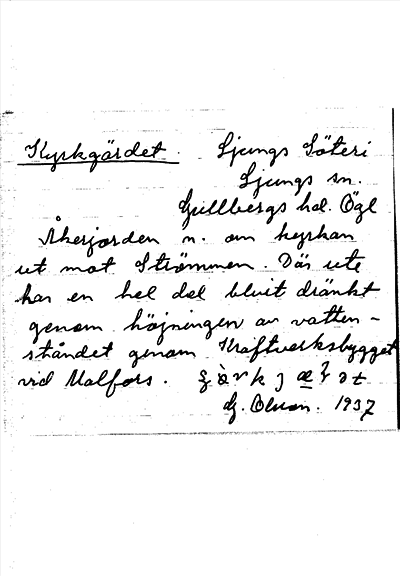 Kyrkgärdet. Ljungs Säteri
Ljungs sn.
Gullbergs hd. Ögl
Åkerjorden n. om kyrkan
ut mot Strömmen. Där ute
har en hel del blivit dränkt
genom höjningen av vatten-
ståndet genom Kraftverksbygget
vid Malfors.
G. Olsson. 1937